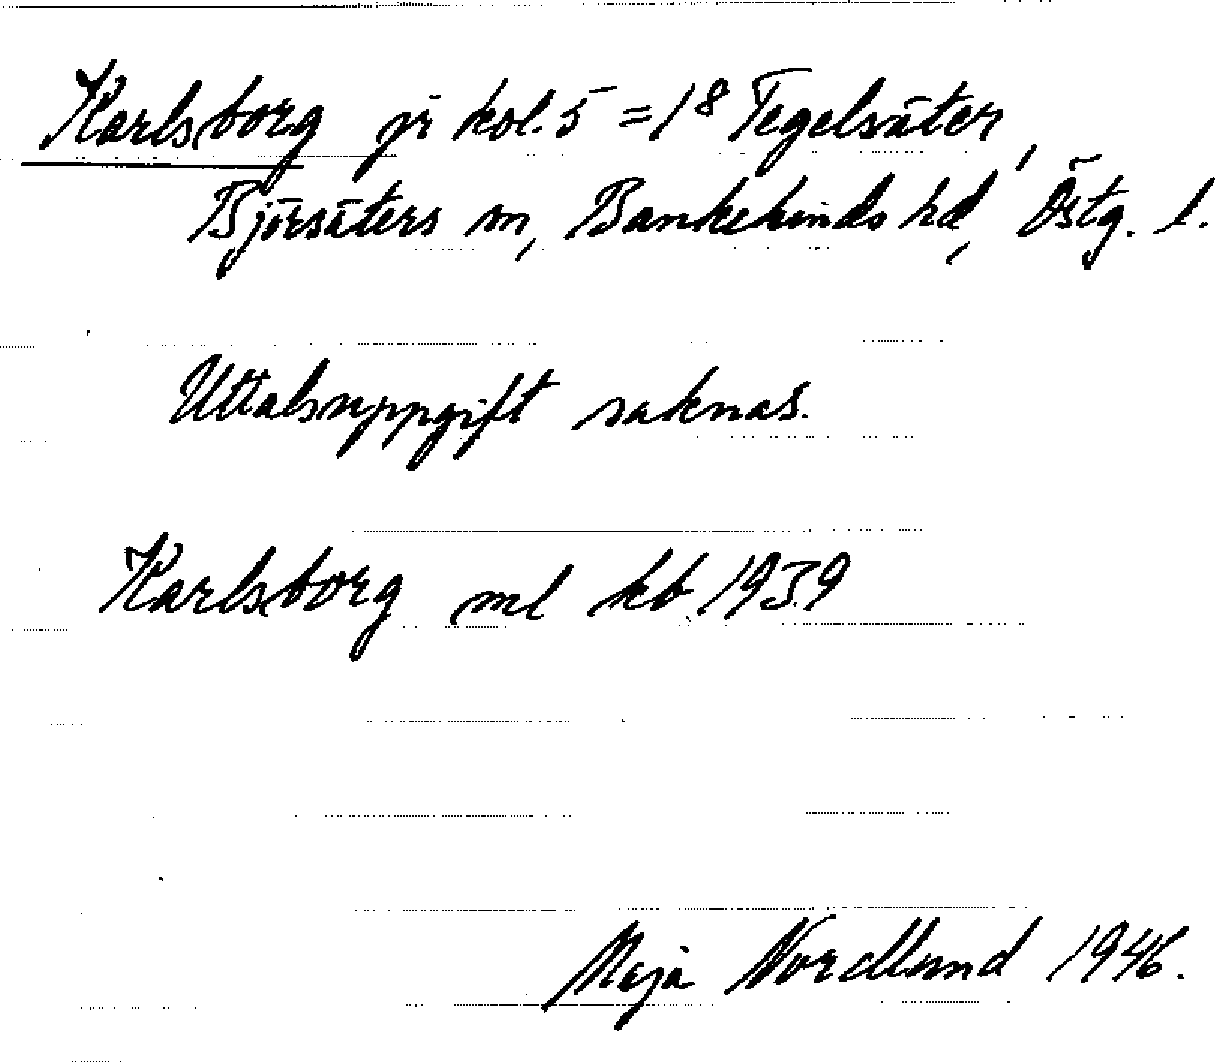 Karlsborg på kol. 5 = 1⁸ Tegelsäter,
Björsäters sn, Bankekinds hd, Östg. l.
Uttalsuppgift saknas.
Karlsborg ml kb 1939
Maja Nordlund 1946.